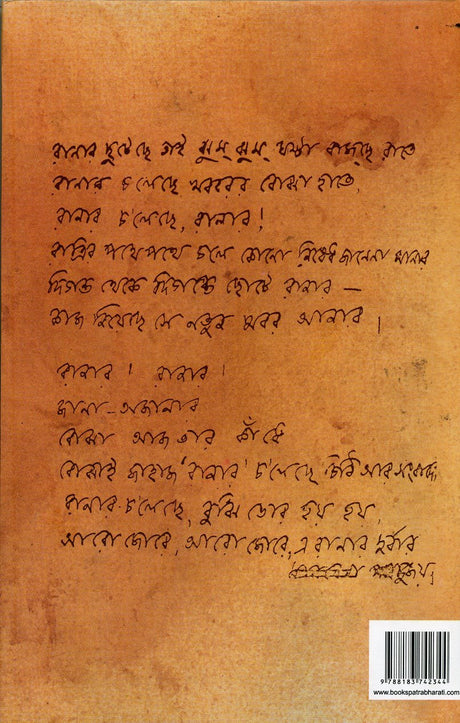 রানার ছুটেছে তাই ঝুম্ ঝুম্ ঘণ্টা বাজছে রাতে
রানার চলেছে খবরের বোঝা হাতে,
রানার চলেছে, রানার!
রাত্রির পথে পথে চলে কোনো নিষেধ জানেনা মানার
দিগন্ত থেকে দিগন্তে ছোটে রানার —
কাজ নিয়েছে সে নতুন খবর আনার।
রানার! রানার!
জানা-অজানার
বোঝা আজ তার কাঁধে
বোঝাই জাহাজ রানার চলেছে চিঠি আর সংবাদে
রানার চলেছে, বুঝি ভোর হয় হয়,
আরো জোরে, আরো জোরে, এ রানার দুর্বার
দুর্জয়।
9 788183 742344
www.bookspatrabharati.com